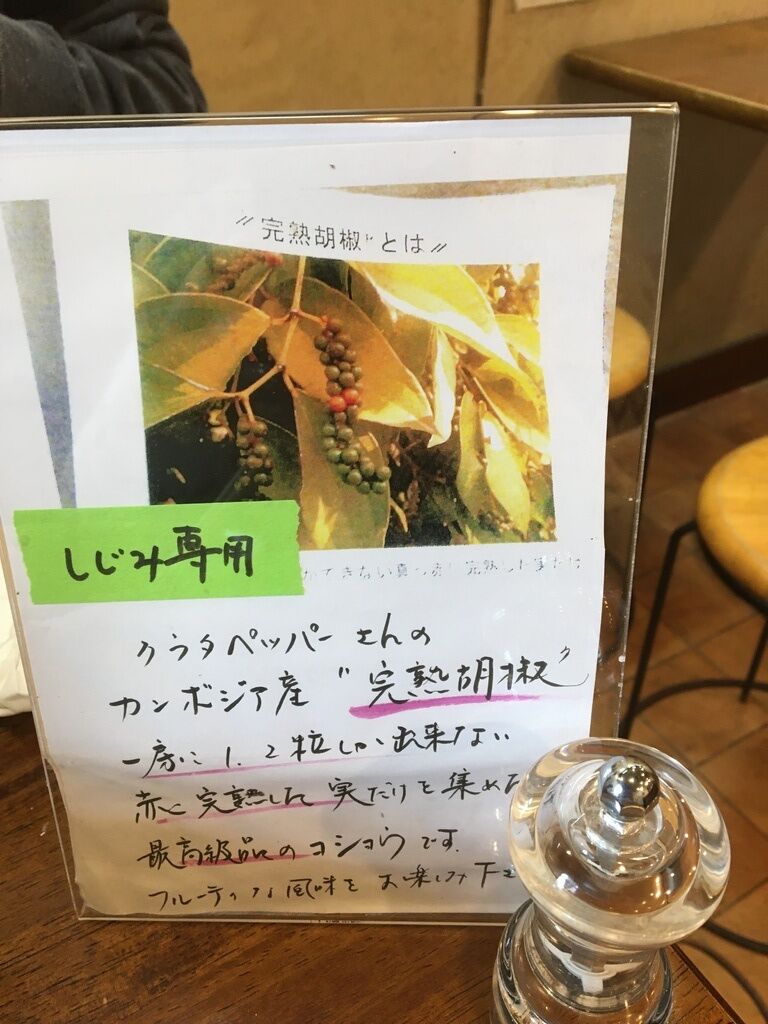 〃完熟胡椒〃とは〃
しじみ専用
できない真っ赤に完熟した実だけ
クラタペッパーさんの
カンボジア産 〝完熟胡椒〟
一房に1、2粒しか出来ない
赤く完熟した実だけを集めた
最高級品のコショウです。
フルーティな風味をお楽しみ下さ